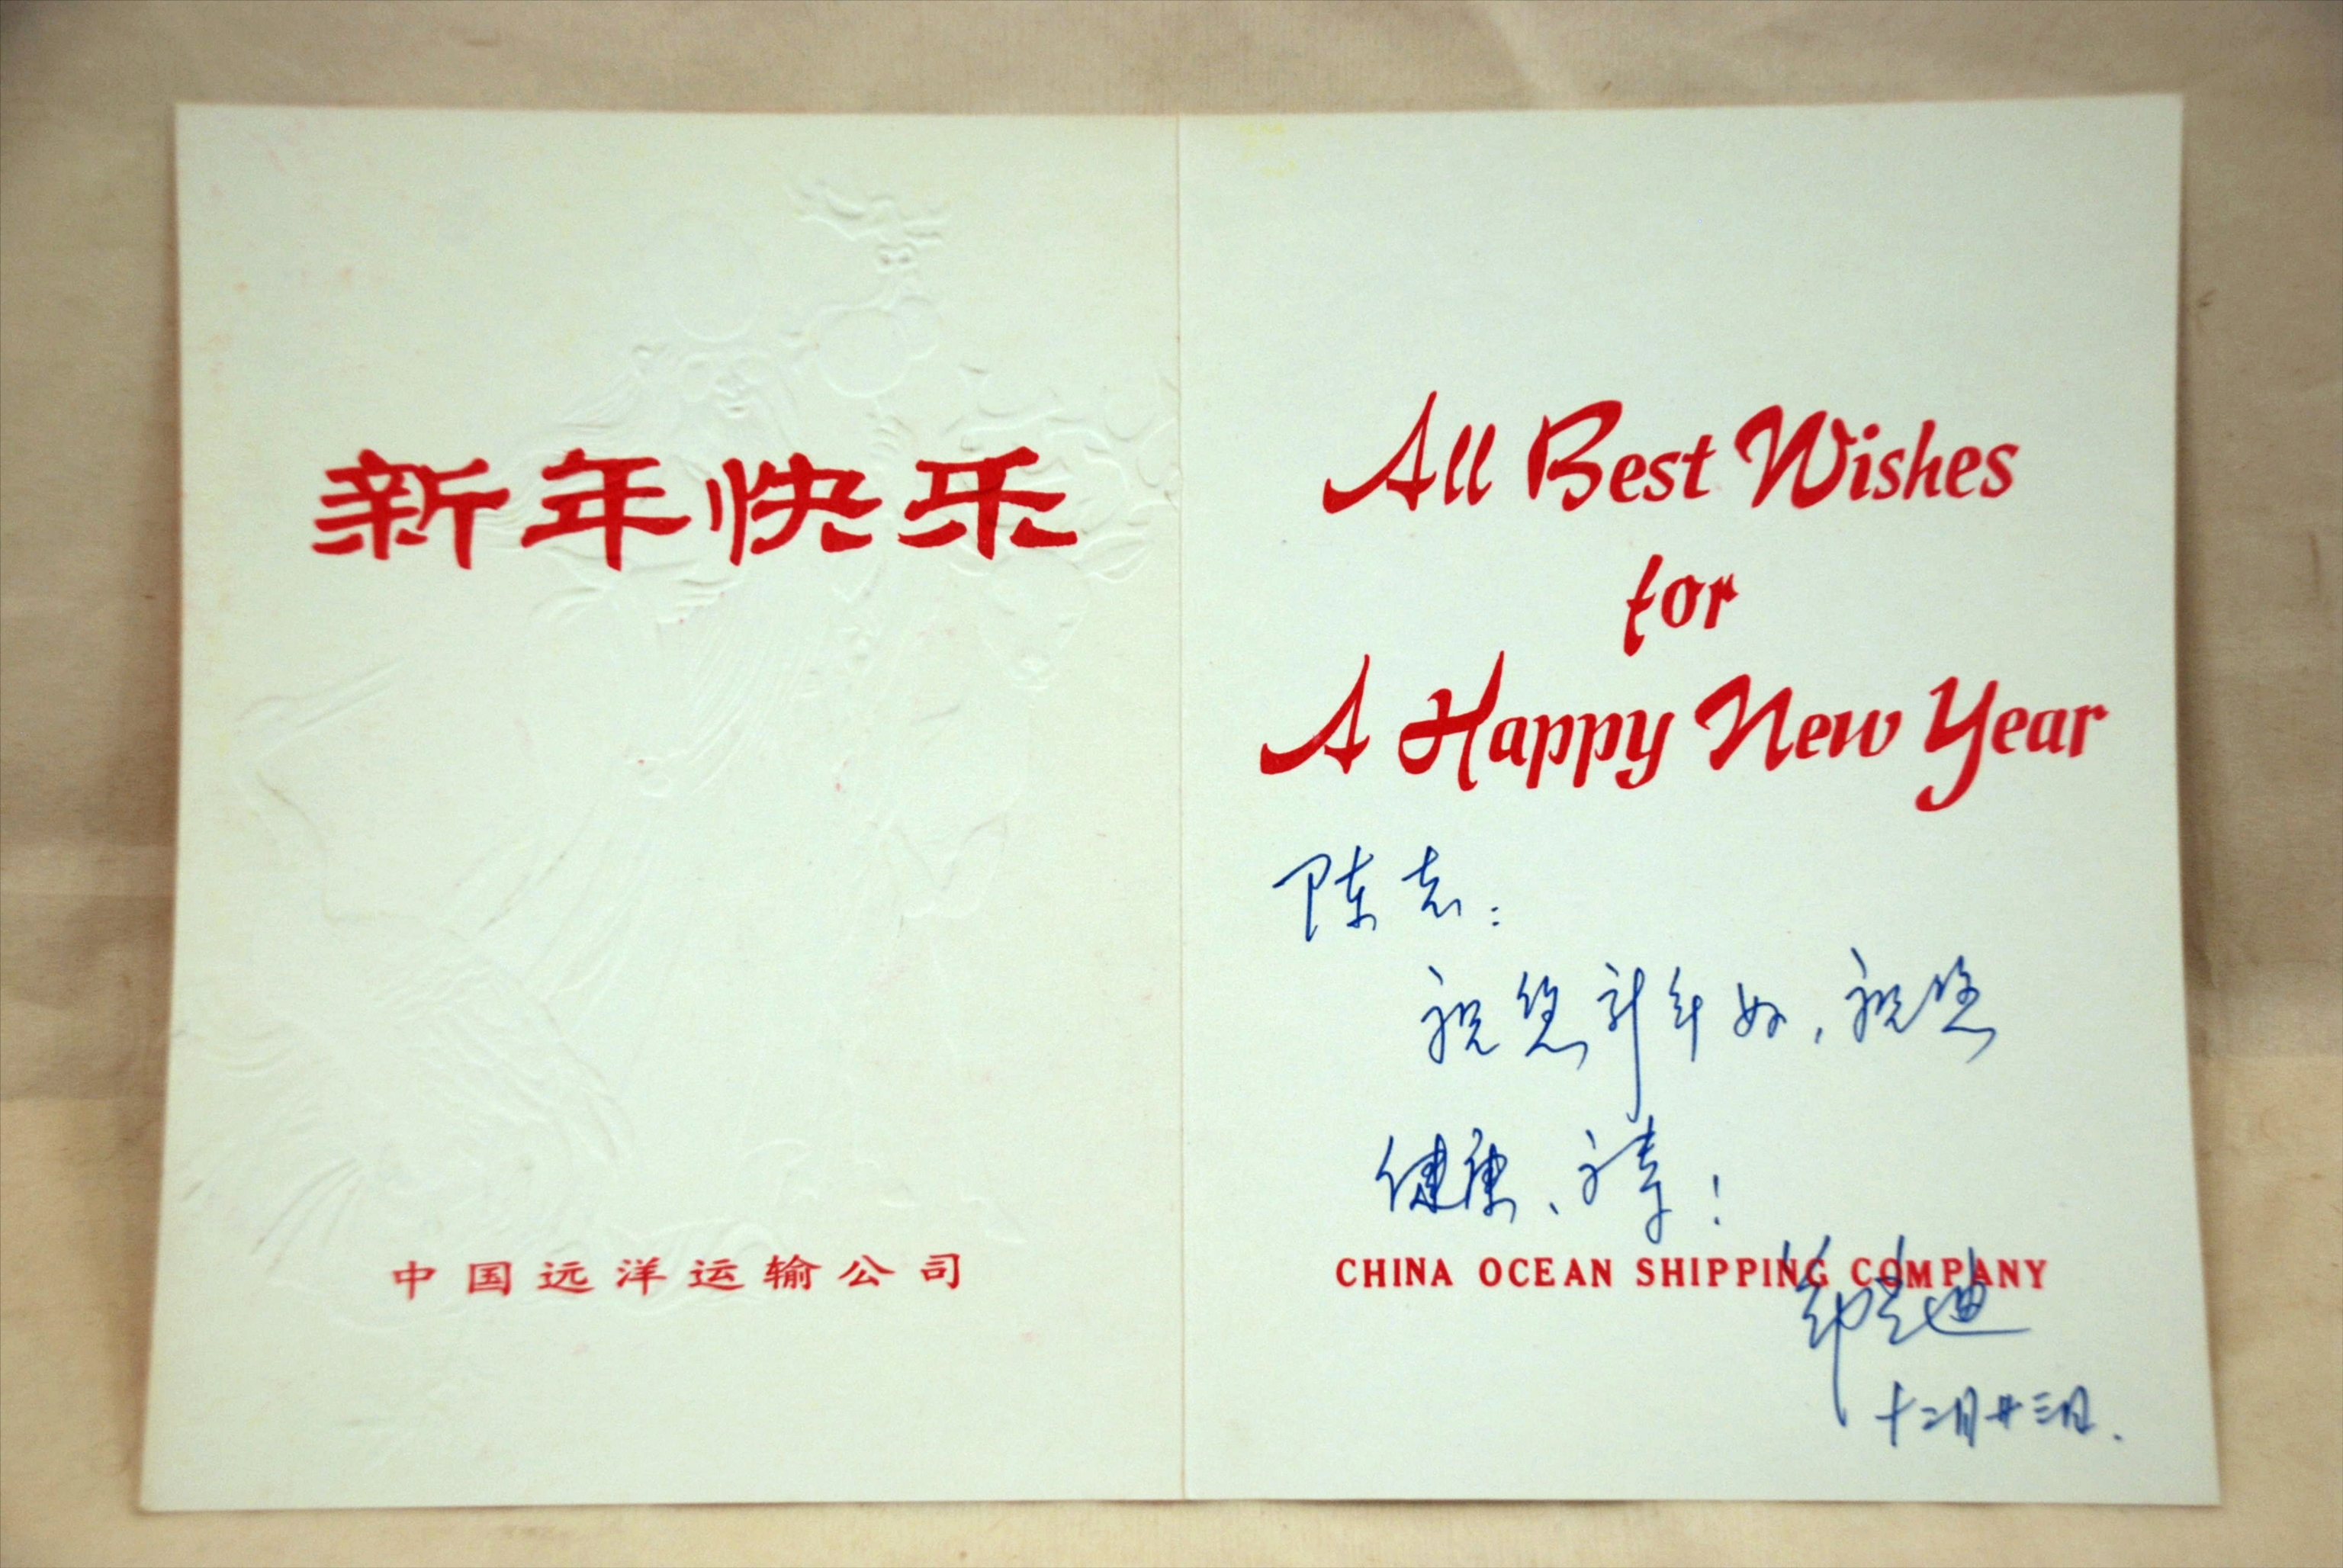 新年快乐
中国远洋运输公司
All Best Wishes
for
A Happy New Year
陈老：
祝您新年好，祝您
健康、长寿！
CHINA OCEAN SHIPPING COMPANY
十二月廿三日.